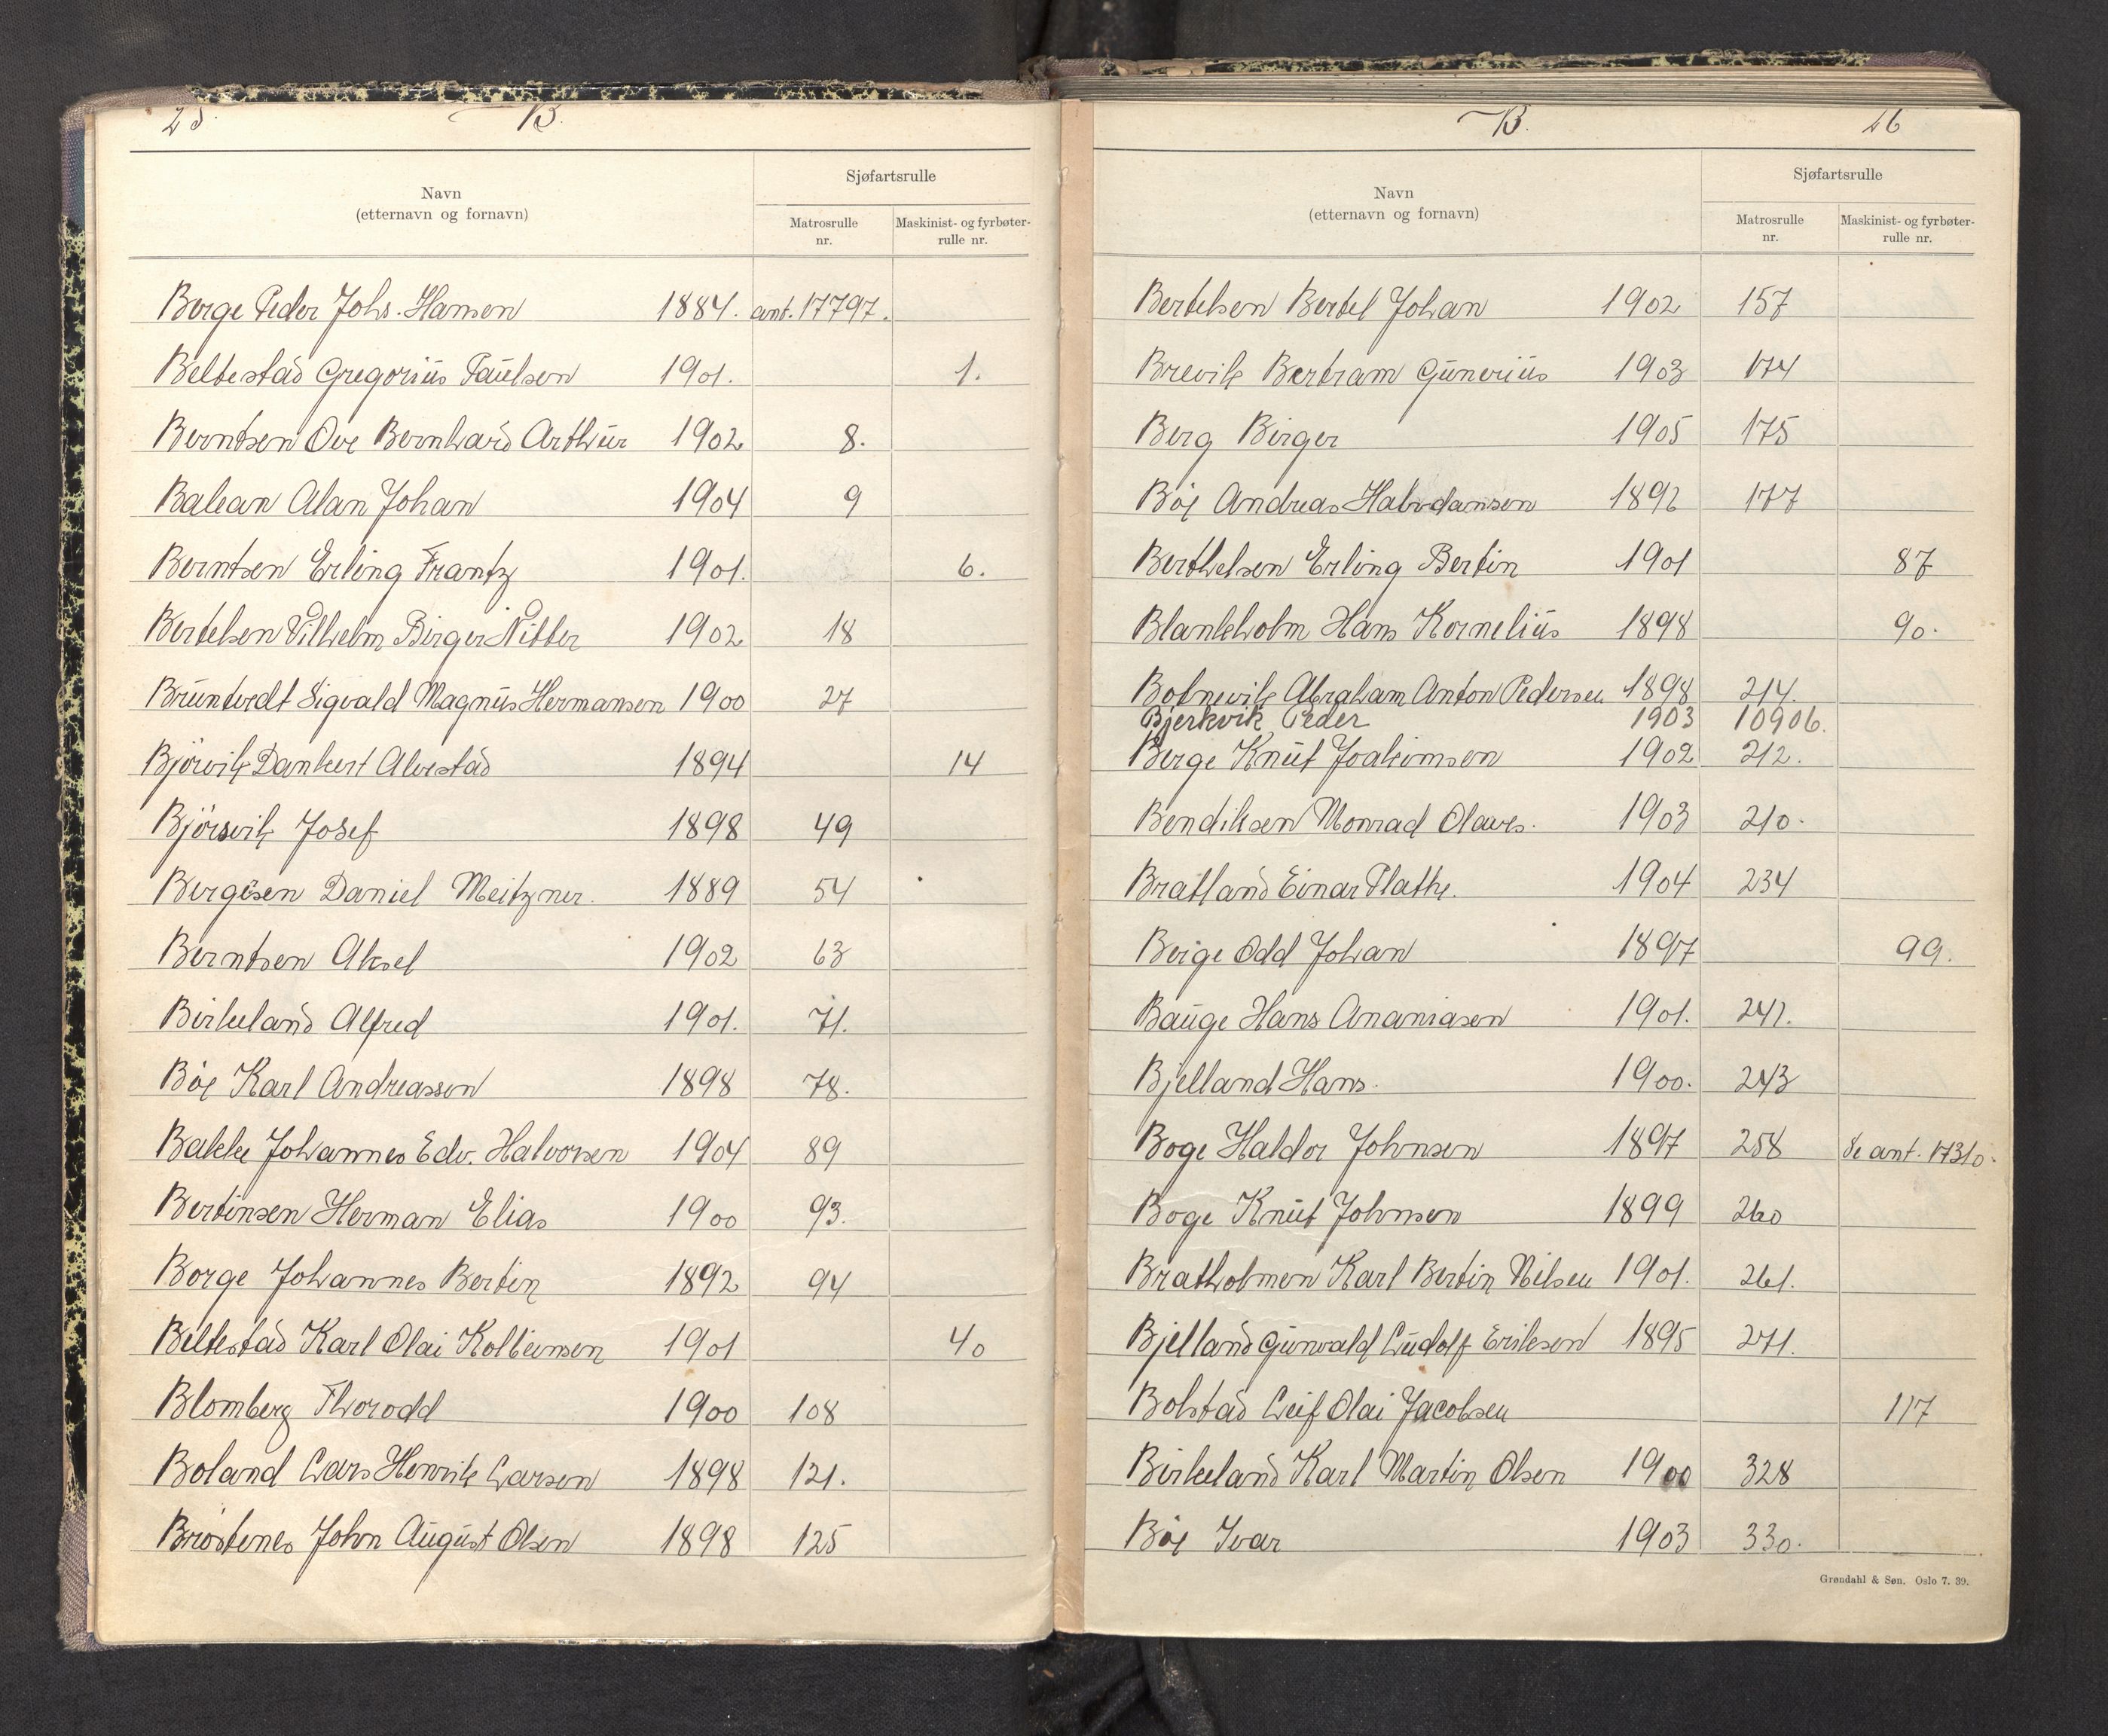 25. B.
Navn
(etternavn og fornavn)
Sjøfartsrulle
Matrosrulle
nr.
Maskinist- og fyrbøter-
rulle nr.
Berge Peder Johs. Hansen 1884. ant. 17797.
Beltestad Gregorius Paulsen 1901. 1.
Berntsen Ove Bernhard Arthur 1902 8.
Balean Alan Johan 1904 9
Berntsen Erling Frantz 1901. 6.
Bertelsen Vilhelm Birger Nitter 1902 18
Bruntvedt Sigvald Magnus Hermansen 1900 27
Bjørvik Dankert Alvestad 1894 14
Bjørsvik Josef 1898 49
Bergesen Daniel Meitzner. 1889 54
Berntsen Aksel 1902 63
Birkeland Alfred 1901. 71.
Bøe Karl Andreassen 1898 78.
Bakke Johannes Edv. Halvorsen 1904 89
Bertinsen Herman Elias 1900 93.
Borge Johannes Bertin 1892 94
Beltestad Karl Olai Kolbeinsen 1901 40
Blomberg Thorodd 1900 108
Boland Lars Henrik Larsen 1898 121.
Brøstenes John August Olsen 1898 125
B. 26
Navn
(etternavn og fornavn)
Sjøfartsrulle
Matrosrulle
nr.
Maskinist- og fyrbøter-
rulle nr.
Bertelsen Bertel Johan 1902 157
Brevik Bertram Gunerius 1903 174
Berg Birger 1905 175
Bøe Andreas Halvdansen 1896 177
Berthelsen Erling Bertin 1901 87
Blankholm Hans Kornelius 1898 90.
Botnevik Abraham Anton Pedersen 1898 214.
Bjerkvik Peder 1903 10906.
Berge Knut Joakimsen 1902 212.
Bendiksen Monrad Olaves. 1903 210.
Bratland Einar Flathe. 1904 234
Berge Odd Johan 1897 99.
Bauge Hans Ananiasen 1901. 241.
Bjelland Hans. 1900. 243
Boge Haldor Johnsen 1897 258 Se ant. 17310.
Boge Knut Johnsen 1899 260
Bratholmen Karl Bertin Nilsen 1901. 261.
Bjelland Gunvald Ludolf Eriksen 1895 271.
Bolstad Leif Olai Jacobsen 117
Birkeland Karl Martin Olsen 1900 328
Bøe Ivar 1903 330.
Grøndahl & Søn. Oslo 7. 39.